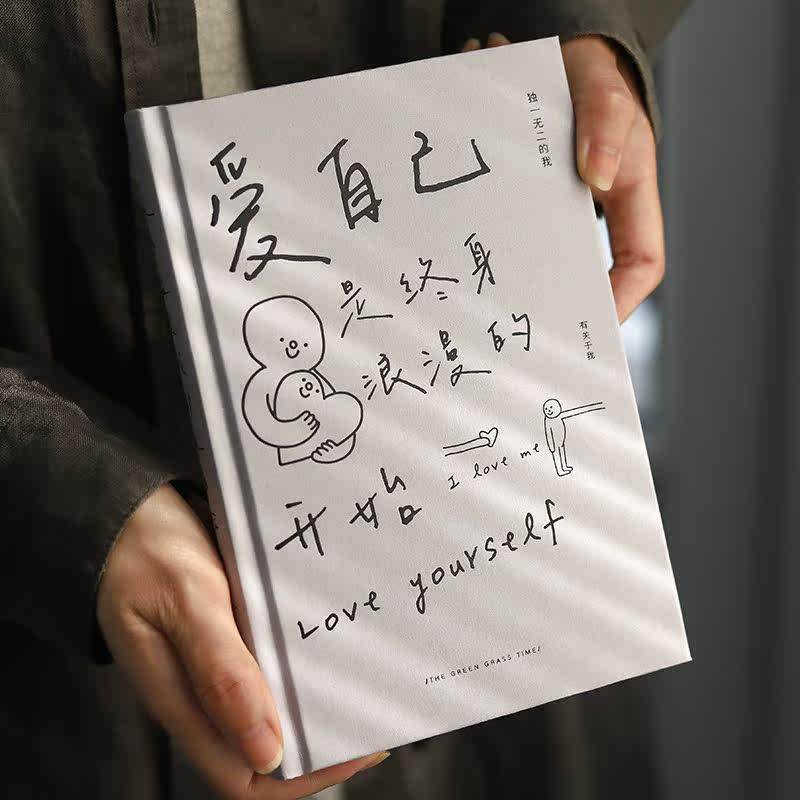 独一无二的我
爱自己
是终身
浪漫的
有关于我
I love me
开始
Love yourself
/THE GREEN GRASS TIME/